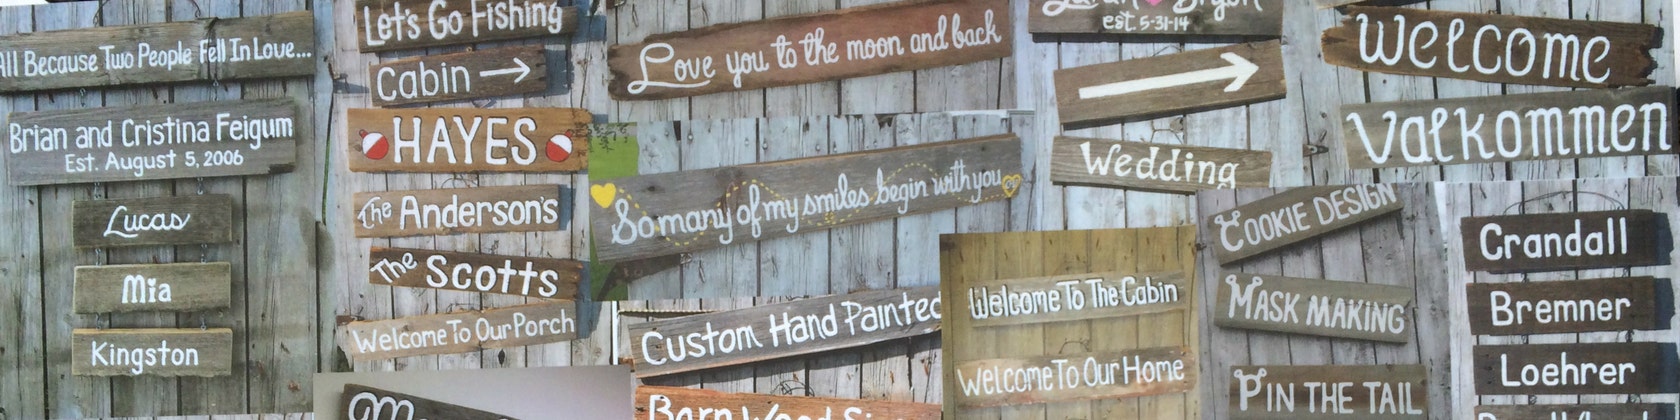 All Because Two People Fell In Love...
Brian and Cristina Feigum
Est. August 5, 2006
Lucas
Mia
Kingston
Let's Go Fishing
Cabin
HAYES
The Anderson's
The Scotts
Welcome To Our Porch
Love you to the moon and back
So many of my smiles begin with you
Custom Hand Painted
Barn Wood
est. 5-31-14
Wedding
Welcome To The Cabin
Welcome To Our Home
Welcome
Valkommen
COOKIE DESIGN
MASK MAKING
PIN THE TAIL
Crandall
Bremner
Loehrer